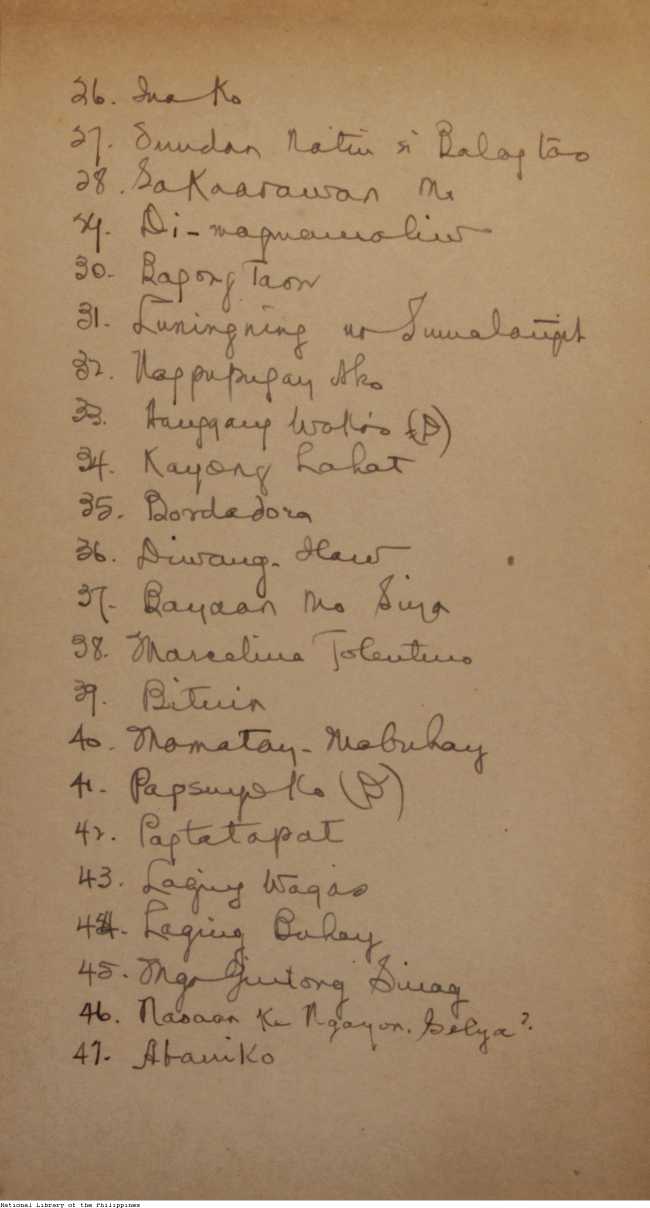 26. Ina Ko
27. Sundan Natin si Balagtas
28. Sa Kaarawan Mo
29. Di-magmamaliw
30. Bagong Taon
31. Luningning ng Sumalangit
32. Nagpupugay Ako
33. Hanggang Wakas (P)
34. Kayong Lahat
35. Bordadora
36. Diwang-Ilaw
37. Bayaan Mo Siya
38. Marcelina Tolentino
39. Bituin
40. Mamatay-Mabuhay
41. Pagsuyo Ko (P)
42. Pagtatapat
43. Laging Wagas
44. Laging Buhay
45. Mga Gintong Sinag
46. Nasaan Ka Ngayon, Selya?
47. Abaniko
National Library of the Philippines